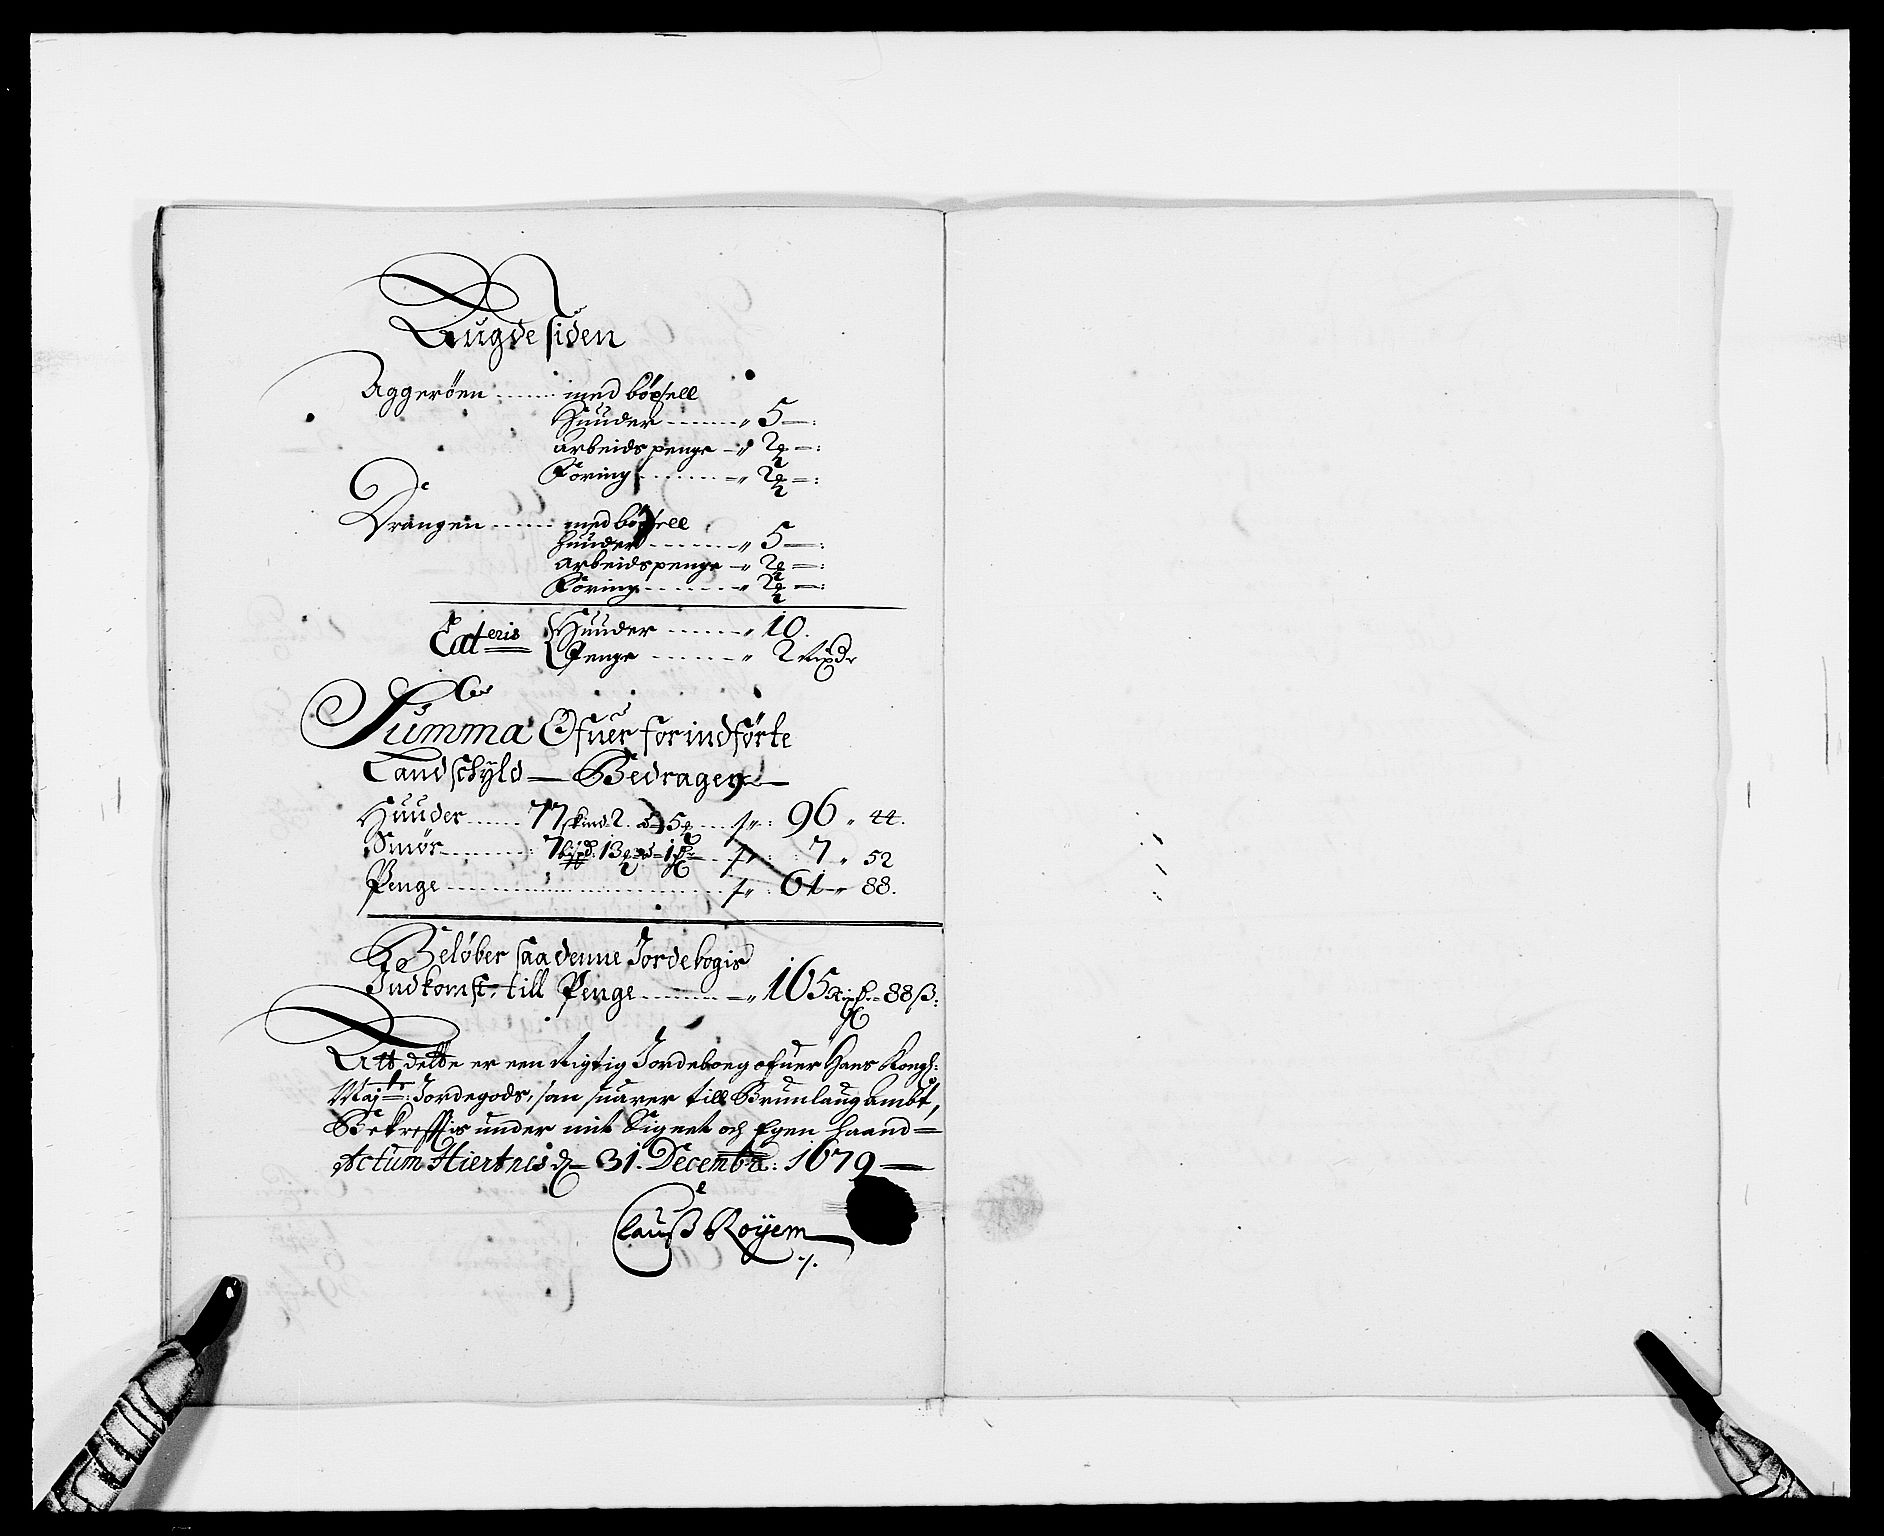 Bugdesiden
Aggerøen ........ med böxsell
Huuder ........ „ 5 —:
arbeids penge — „ 2 ß —:
Föring ........ „ 2 ß —:
Drangen ........ med böxsell
huuder ........ „ 5 —:
arbeidspenge — „ 2 ß —:
Föring ........ „ 2 ß —:
Huuder ........ „ 10.
Penge ........ „ 2 rixdr
Summa Ofuer forindförte
Landschyld — Bedragen —
Huuder ...... 77 skind. 2. 5 ...... „ : 96 „ 44.
Smör ........ : 7 bispd: 13 ...... „ : 7 „ 52
Penge ........ „ : 61 „ 88.
Belöber saa denne Jordebogis
Indkomst, till Penge ........ „ 165 Rixdr = 88 ß:
Att dette er een Rigtig Jordeboeg ofuer Hans Kongl:
Majts: Jordegods, som suarer till Brunlaugambt,
Bekreffis under mit Signet och Egen haand =
Actum Hiertnes d — 31. Decembr: 1679 —
Clauß Røyem